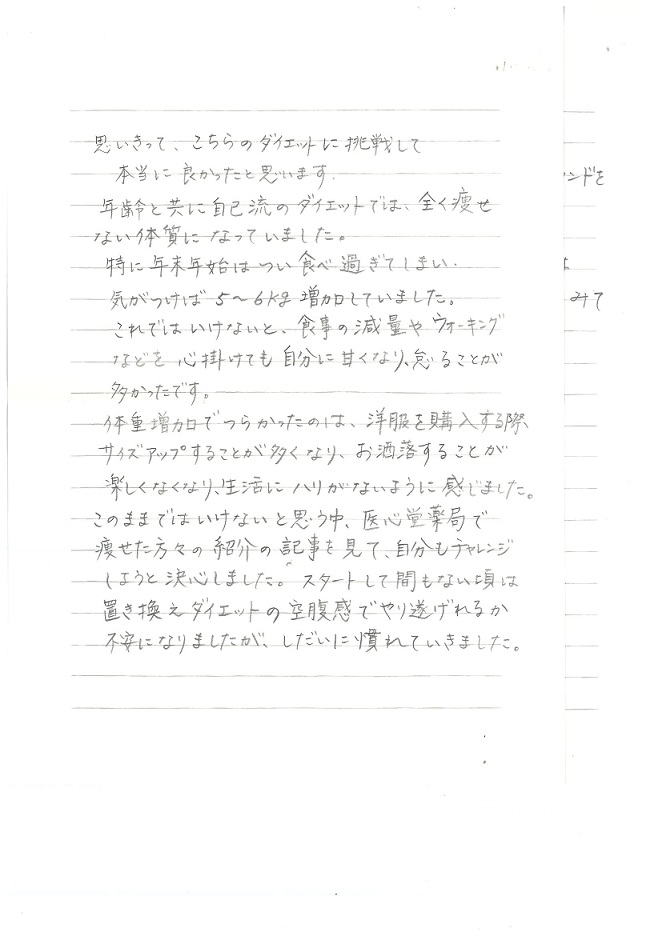 思いきって、こちらのダイエットに挑戦して
本当に良かったと思います.
年齢と共に自己流のダイエットでは、全く痩せ
ない体質になっていました。
特に年末年始はつい食べ過ぎてしまい.
気がつけば5～6kg増加していました。
これではいけないと、食事の減量やウォーキング
などを心掛けても自分に甘くなり、怠ることが
多かったです。
体重増加でつらかったのは、洋服を購入する際、
サイズアップすることが多くなり、お洒落することが
楽しくなくなり、生活にハリがないように感じました。
このままではいけないと思う中、医心堂薬局で
痩せた方々の紹介の記事を見て、自分もチャレンジ
しようと決心しました。スタートして間もない頃は
置き換えダイエットの空腹感でやり遂げれるか
不安になりましたが、しだいに慣れていきました。
ンドを
は
みて